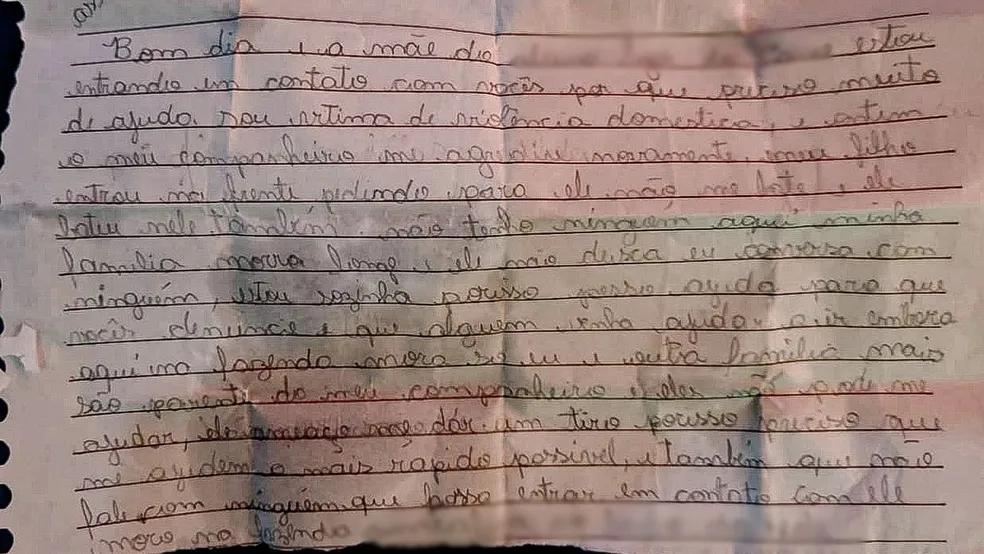 Bom dia e a mãe do
estou
entrando un contato com vocês por que preciso muito
de ajuda. sou vitima de violência domestica, e ontem
o meu companheiro me agrediu novamente, meu filho
entrou na frente pidindo para ele não me bate, e ele
bateu nele também. não tenho ninguem aqui minha
familia morra longe, e ele não deixa eu conversa com
ninguém, estou sozinha ajuda para que
vocês denuncie e que alguem venha ajuda a ir embora
aqui na fazenda mora so eu e outra familia mais
são parenti do meu companheiro e eles não pode me
ajudar, ele dár um tiro preciso que
me ajudem o mais rápido possivel, e também que não
fale com ninguém que possa entrar em contato com ele
moro na fazenda